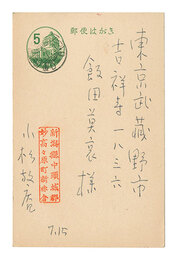 郵便はがき
5
東京武蔵野市
吉祥寺一八三六
飯田莫哀様
新潟縣中頸城郡
妙高々原町新赤倉
小杉放庵
7.15